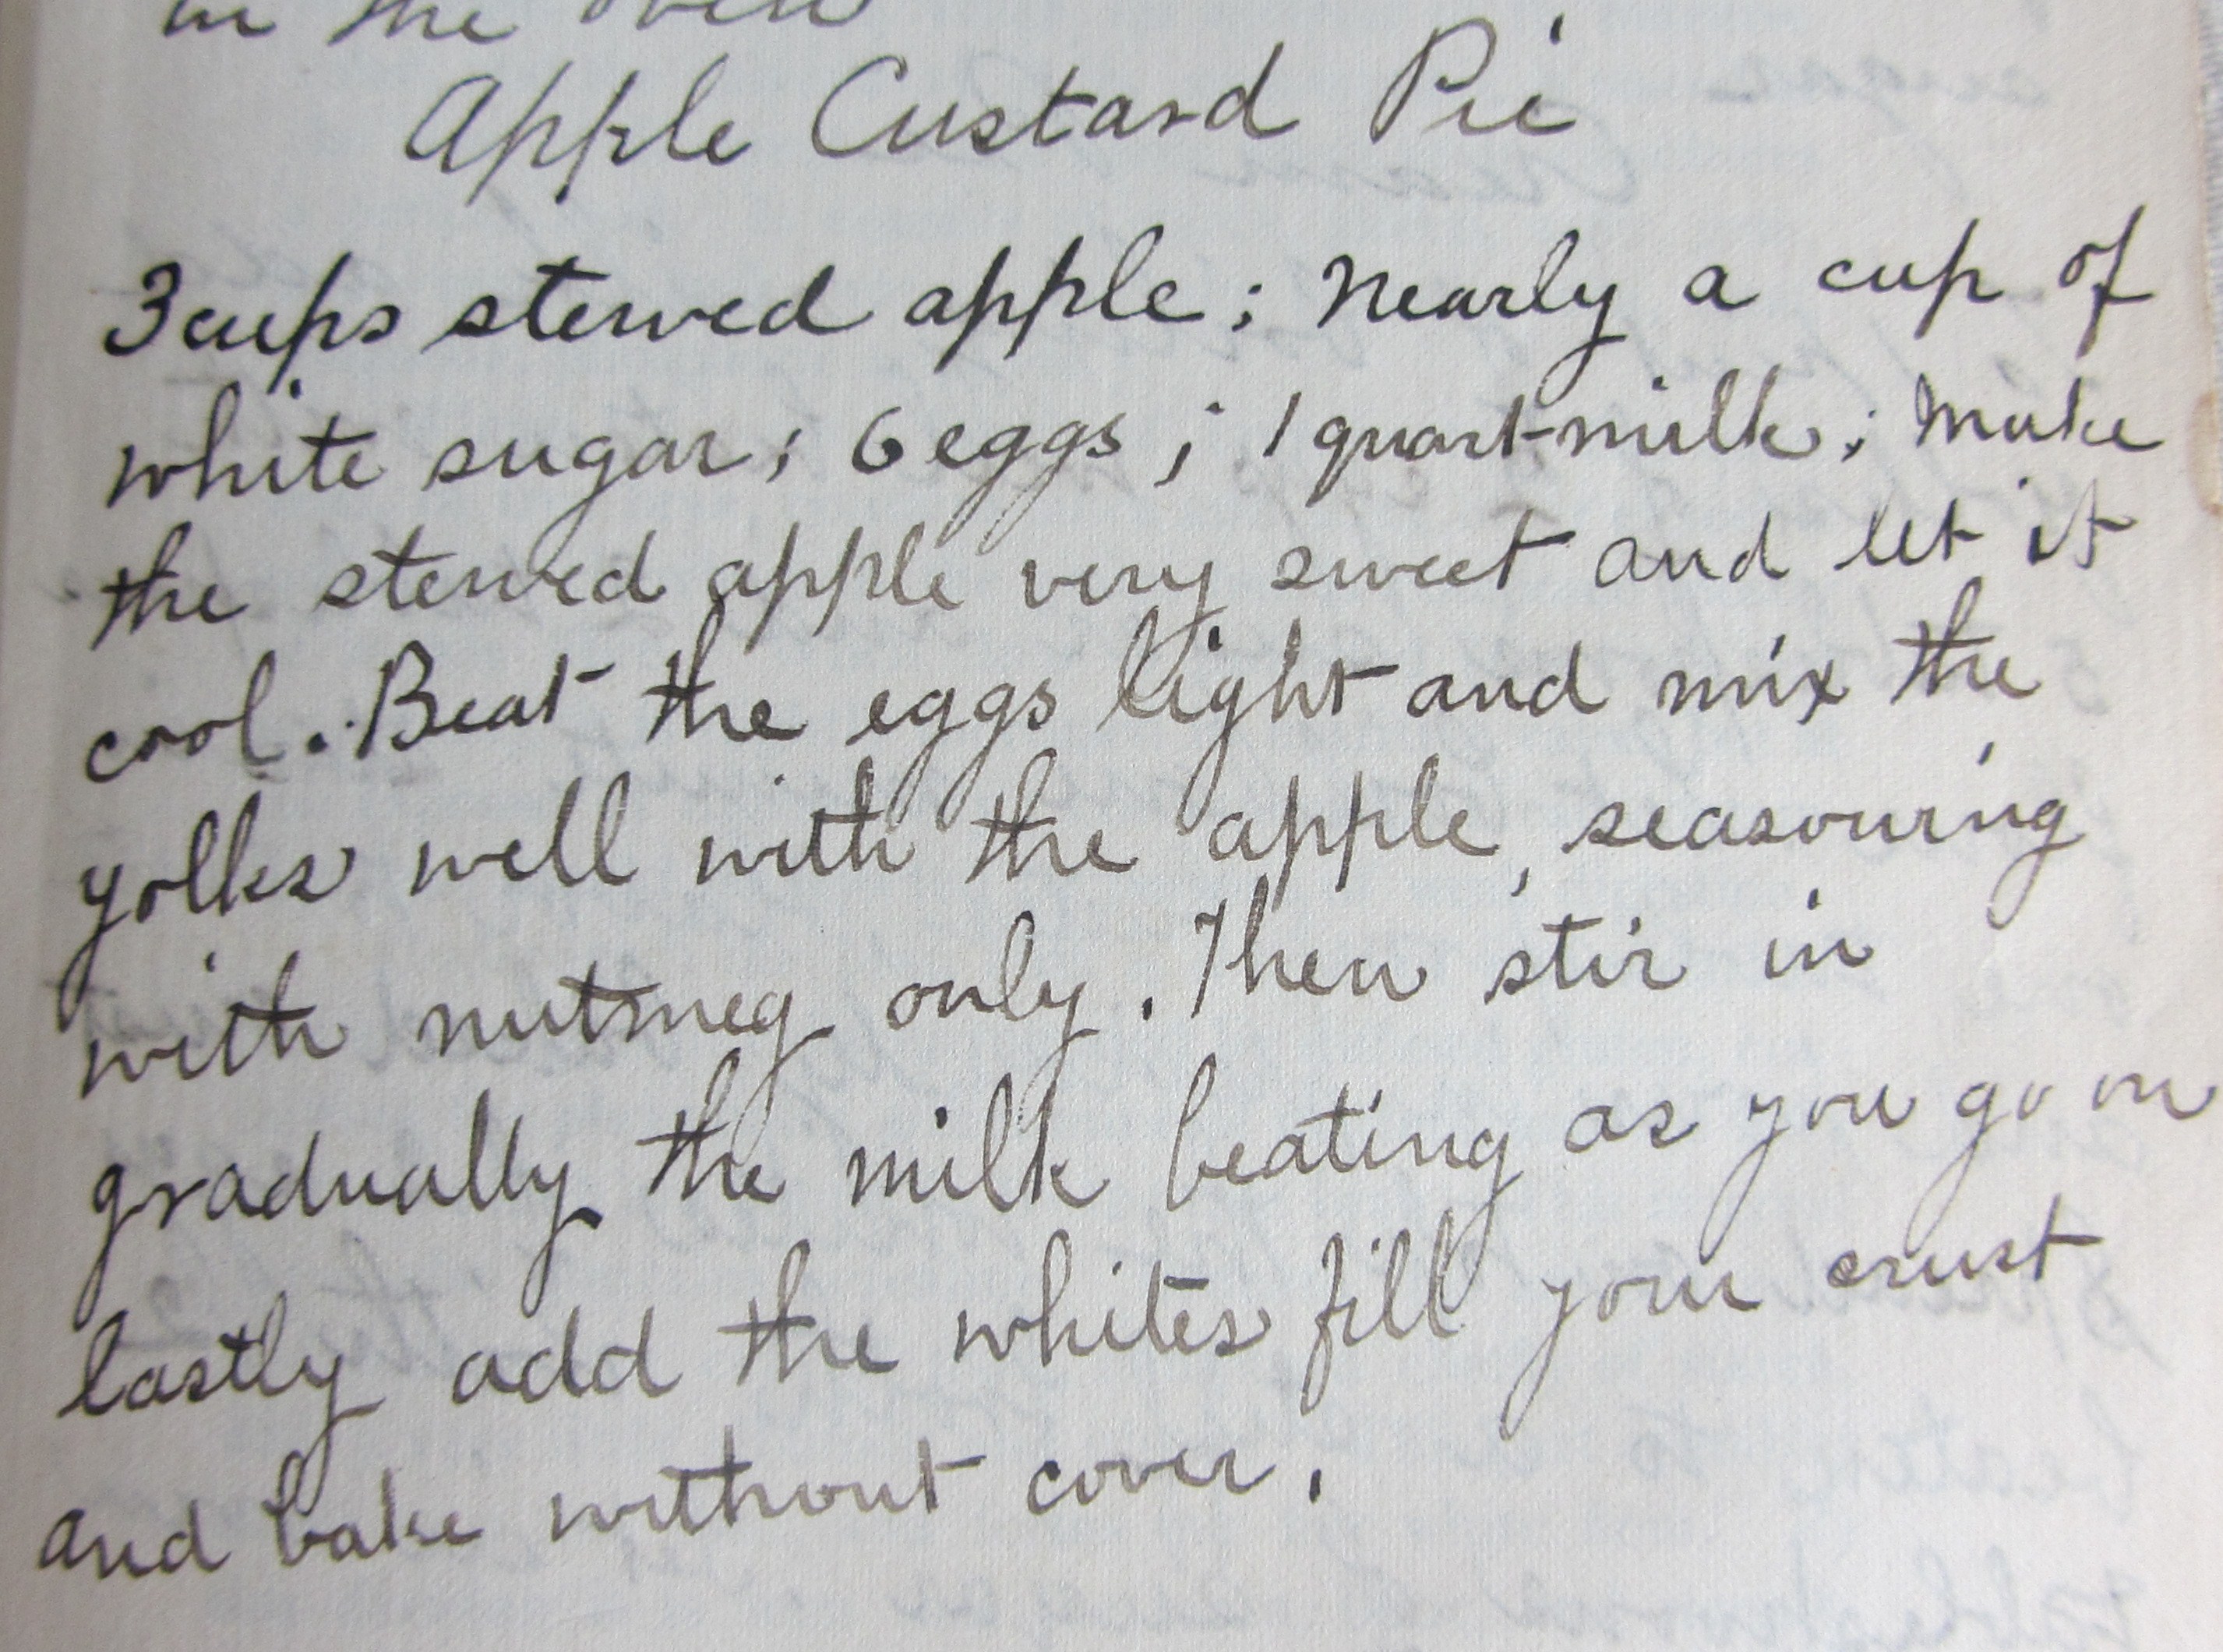 in the oven
Apple Custard Pie
3 cups stewed apple; Nearly a cup of
white sugar; 6 eggs; 1 quart milk; Make
the stewed apple very sweet and let it
cool. Beat the eggs light and mix the
yolks well with the apple, seasoning
with nutmeg only. Then stir in
gradually the milk beating as you go on
lastly add the whites fill your crust
and bake without cover.